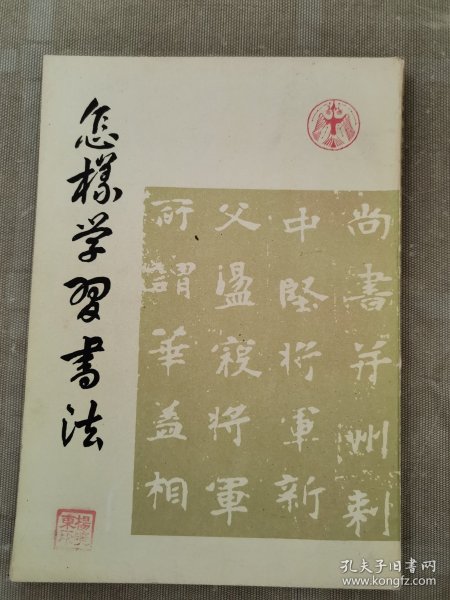 怎樣学習書法
尚書并州刺
中堅将軍新
父盪寇将軍
所謂華盖相
孔夫子旧书网
www.kongfz.com